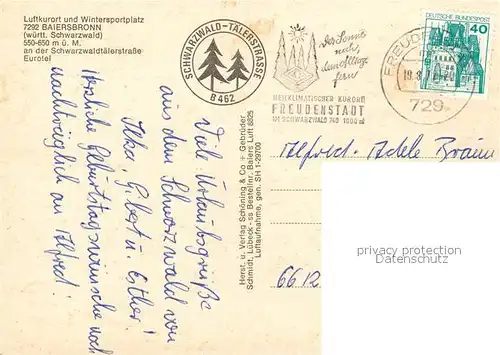 Luftkurort und Wintersportplatz
7292 BAIERSBRONN
(württ. Schwarzwald)
550-650 m ü. M.
an der Schwarzwaldtälerstraße
Eurotel
SCHWARZWALD-TÄLERSTRASSE
B 462
der Sonne
nah,
dem Alltag
fern
HEILKLIMATISCHER KURORT
FREUDENSTADT
IM SCHWARZWALD 740-1000 m
FREUDENS
729
DEUTSCHE BUNDESPOST
40
Viele Urlaubsgrüße
aus dem Schwarzwald von
Ilka, Gibert u. Esther!
Herzliche Geburtstagswünsche noch
nachträglich an Alfred!
Herst. u. Verlag Schöning & Co + Gebrüder
Schmidt, Lübeck - ss Bestellnr. Baiers Luft 6825
Luftaufnahme, gen. SH 1-29700
Alfred u. Adele Braun
6612
privacy protection
Datenschutz